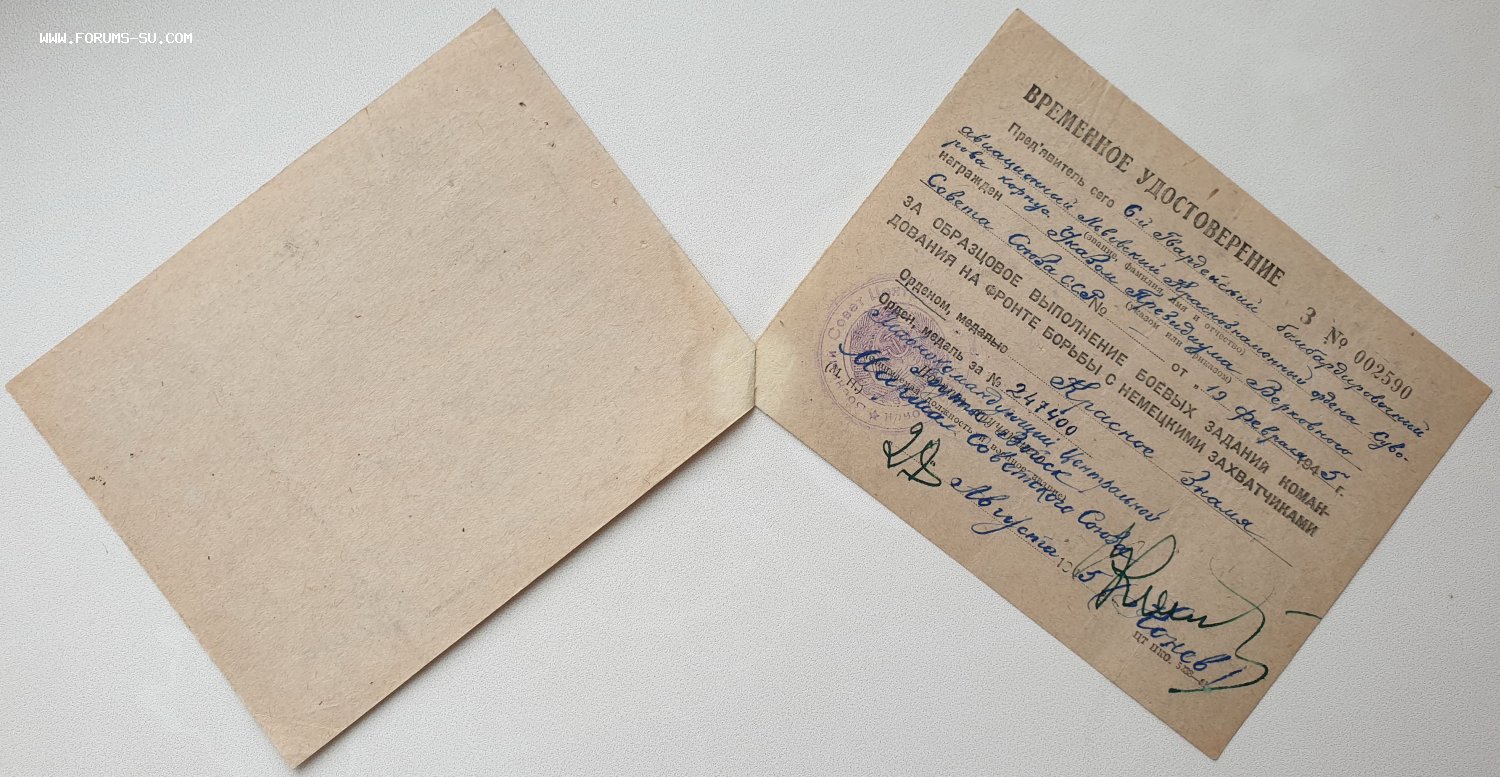 WWW.FORUMS-SU.COM
ВРЕМЕННОЕ УДОСТОВЕРЕНИЕ
З № 002590
Пред'явитель сего 6-й Гвардейский бомбардировочный
авиационный Львовский Краснознаменный ордена Суво-
(звание, фамилия, имя и отчество)
рова корпус
награжден Указом Президиума Верховного
(указом или приказом)
Совета Союза ССР № — от „19 февраля 1945 г.
ЗА ОБРАЗЦОВОЕ ВЫПОЛНЕНИЕ БОЕВЫХ ЗАДАНИЙ КОМАН-
ДОВАНИЯ НА ФРОНТЕ БОРЬБЫ С НЕМЕЦКИМИ ЗАХВАТЧИКАМИ
Орденом, медалью Красное Знамя
Орден, медаль за № 247400
Главнокомандующий Центральной
Группы Войск
Маршал Советского Союза
(М. П.)
Август 1945
Конев